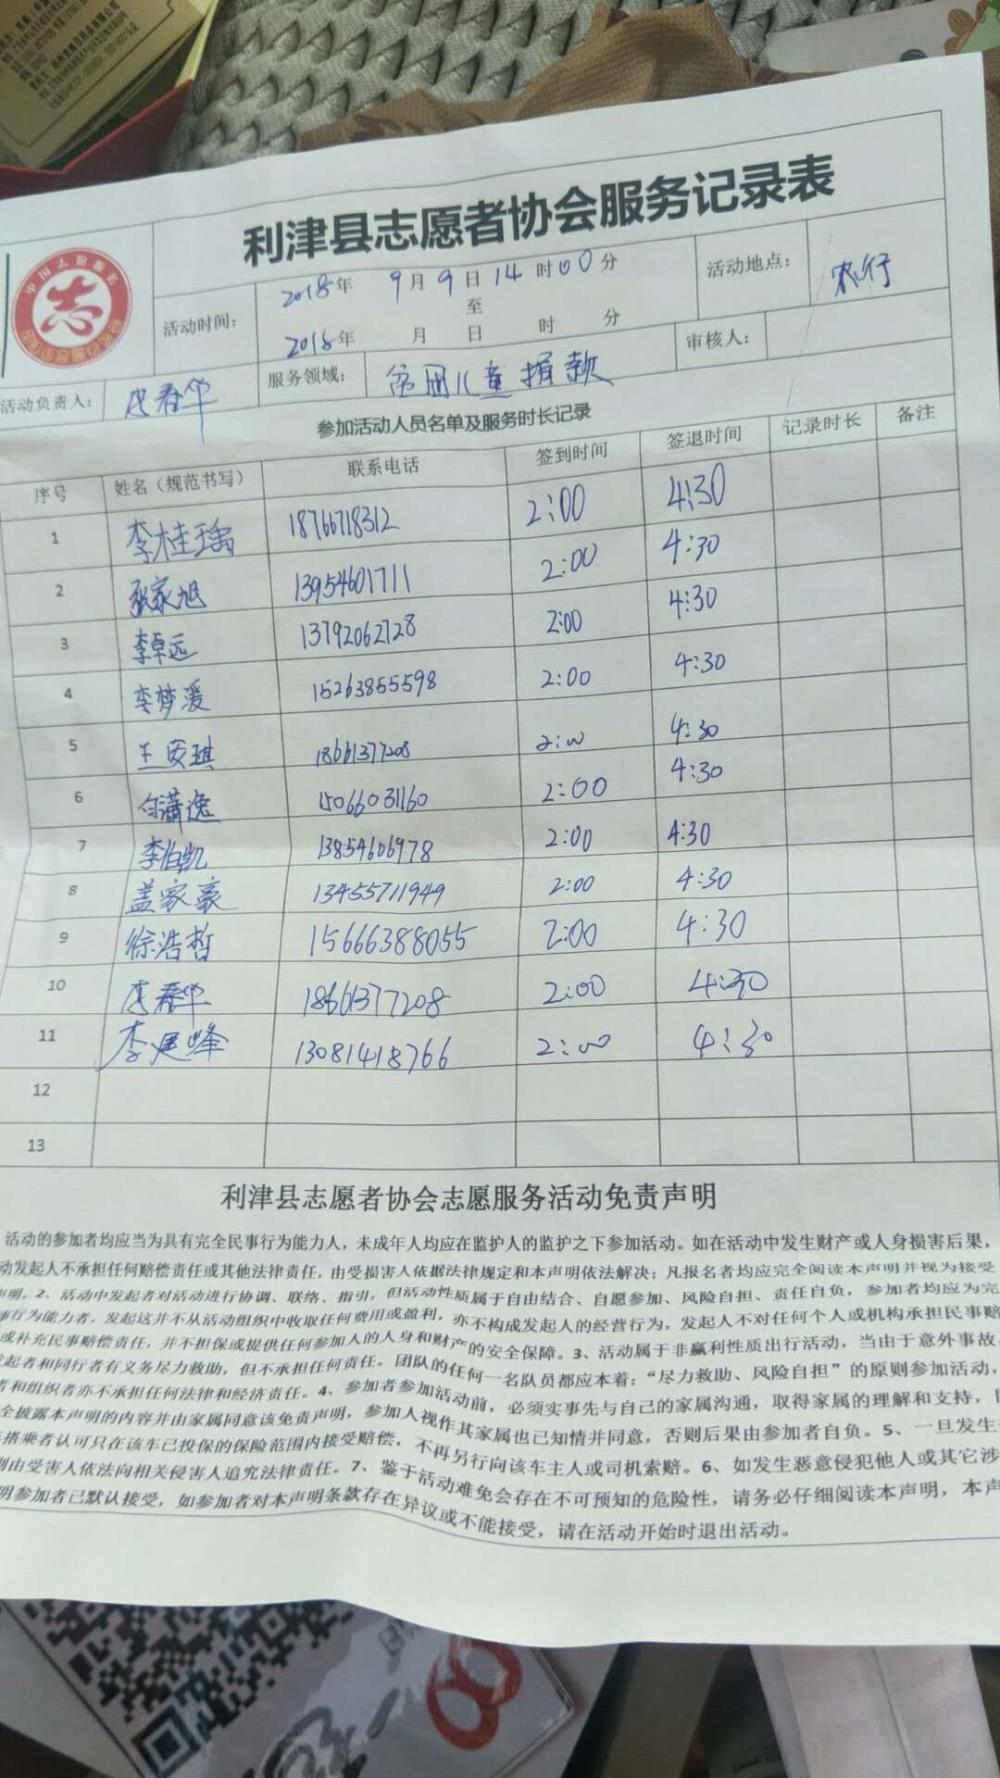 利津县志愿者协会服务记录表
活动时间： 2018年 9月 9日 14时00分
至
2018年 月 日 时 分
活动地点： 农行
活动负责人： 春华
服务领域： 贫困儿童捐款
审核人：
参加活动人员名单及服务时长记录
序号 姓名（规范书写） 联系电话 签到时间 签退时间 记录时长 备注
1 李桂瑀 18766718312 2:00 4:30
2 张家旭 13954601711 2:00 4:30
3 李卓远 13792062728 2:00 4:30
4 李梦瑗 15263855598 2:00 4:30
5 王贤琪 18661377208 2:00 4:30
6 潇逸 15066031160 2:00 4:30
7 李柏凯 13854606978 2:00 4:30
8 盖家豪 13455711949 2:00 4:30
9 徐浩哲 15666388055 2:00 4:30
10 春华 18661377208 2:00 4:30
11 李建峰 13081418766 2:00 4:30
12
13
利津县志愿者协会志愿服务活动免责声明
活动的参加者均应当为具有完全民事行为能力人，未成年人均应在监护人的监护之下参加活动。如在活动中发生财产或人身损害后果，
动发起人不承担任何赔偿责任或其他法律责任，由受损害人依据法律规定和本声明依法解决；凡报名者均应完全阅读本声明并视为接受
声明。2、活动中发起者对活动进行协调、联络、指引，但活动性质属于自由结合、自愿参加、风险自担、责任自负，参加者均应为完
事行为能力者，发起这并不从活动组织中收取任何费用或盈利，亦不构成发起人的经营行为，发起人不对任何个人或机构承担民事赔
或补充民事赔偿责任，并不担保或提供任何参加人的人身和财产的安全保障。3、活动属于非赢利性质出行活动，当由于意外事故
起者和同行者有义务尽力救助，但不承担任何责任。团队的任何一名队员都应本着：“尽力救助、风险自担”的原则参加活动，
者和组织者亦不承担任何法律和经济责任。4、参加者参加活动前，必须实事先与自己的家属沟通，取得家属的理解和支持，
全披露本声明的内容并由家属同意该免责声明，参加人视作其家属也已知情并同意，否则后果由参加者自负。5、一旦发生
搭乘者认可只在该车已投保的保险范围内接受赔偿，不再另行向该车主人或司机索赔。6、如发生恶意侵犯他人或其它涉
则由受害人依法向相关侵害人追究法律责任。7、鉴于活动难免会存在不可预知的危险性，请务必仔细阅读本声明，本声
明参加者已默认接受，如参加者对本声明条款存在异议或不能接受，请在活动开始时退出活动。